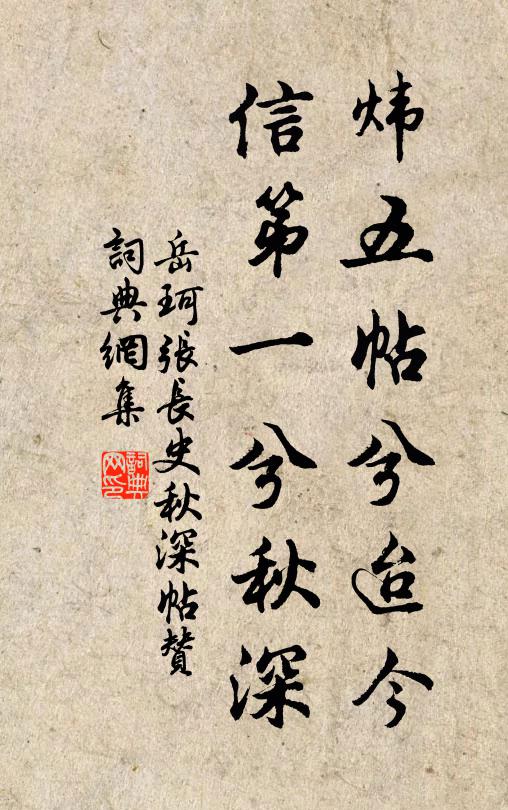 炜五帖兮迨今
信第一兮秋深
岳珂張長史秋深帖贊
詞典網集
詞典網印